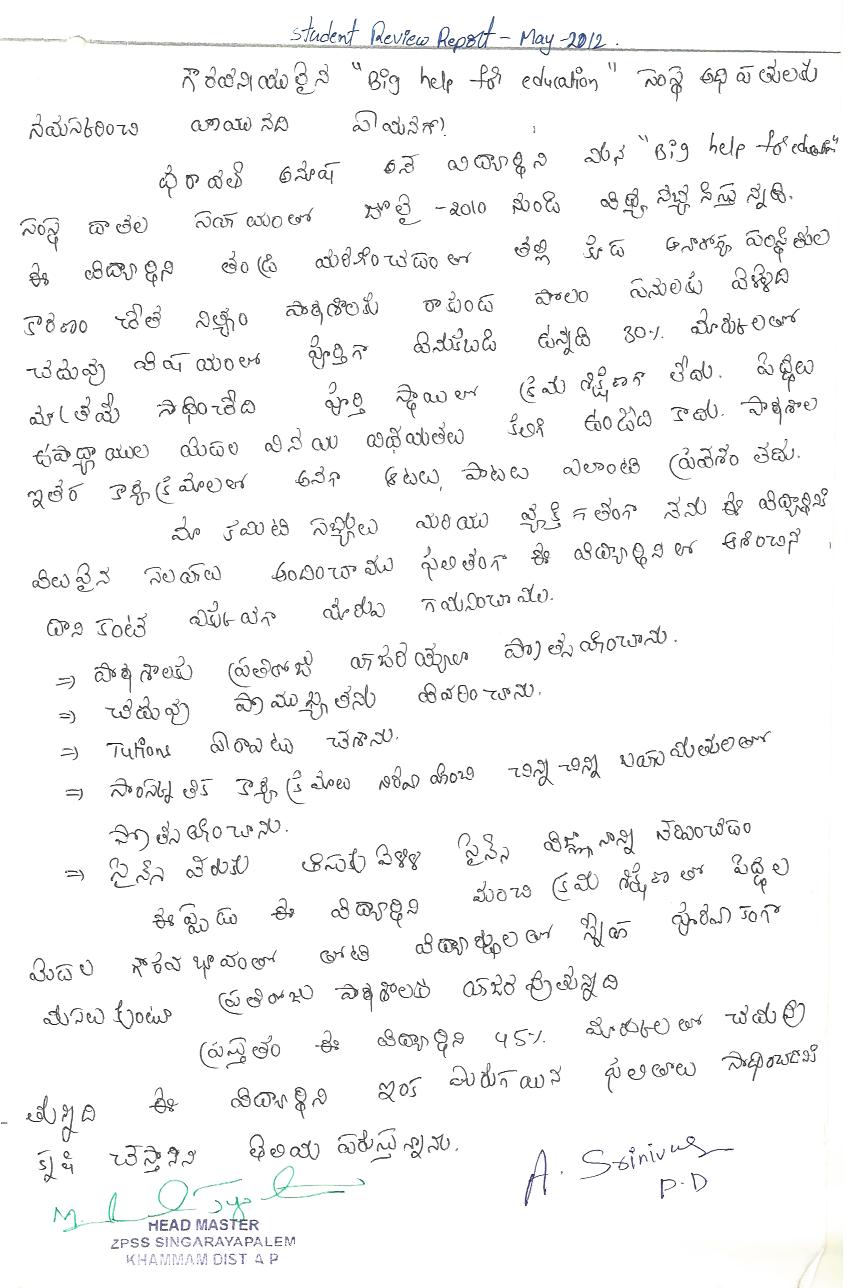 Student Review Report - May - 2012.
గౌరవనీయులైన "Big help for education" సంస్థ అధిపతులకు
నమస్కరించి వ్రాయునది ఏమనగా!
అనూష అనే విద్యార్థిని మన "Big help for education"
సంస్థ దాతల సహాయంతో జూలై -2010 నుండి విద్యనభ్యసిస్తున్నది.
ఈ విద్యార్థిని తండ్రి మరణించడంతో తల్లి కూడ అనారోగ్య పరిస్థితుల
కారణం చేత నిత్యం పాఠశాలకు రాకుండ పొలం పనులకు వెళ్ళేది
చదువు విషయంలో పూర్తిగా వెనుకబడి ఉన్నది 30% మార్కులతో
మాత్రమే సాధించేది పూర్తి స్థాయిలో క్రమశిక్షణగా లేదు. పెద్దలు
ఉపాధ్యాయుల యెడల వినయ విధేయతలు కలిగి ఉండేది కాదు. పాఠశాల
ఇతర కార్యక్రమాలలో అనగా ఆటలు, పాటలు ఎలాంటి ప్రవేశం లేదు.
మా కమిటి సభ్యులు మరియు వ్యక్తిగతంగా నేను ఈ విద్యార్థినికి
విలువైన సలహాలు అందించాము ఫలితంగా ఈ విద్యార్థినిలో ఆశించిన
దాని కంటే ఎక్కువగా మార్పు గమనించాము.
⇒ పాఠశాలకు ప్రతిరోజు హాజరయ్యేలా ప్రోత్సహించాను.
⇒ చదువు ప్రాముఖ్యతను వివరించాను.
⇒ Tutions ఏర్పాటు చేశాను.
⇒ సాంస్కృతిక కార్యక్రమాలు నిర్వహించి చిన్న చిన్న బహుమతులతో
ప్రోత్సహించాను.
⇒ సైన్స్ తీసుకు వెళ్ళి సైన్స్ విజ్ఞానాన్ని
ఈప్పుడు ఈ విద్యార్థిని మంచి క్రమశిక్షణతో పెద్దల
యెడల గౌరవభావంతో తోటి విద్యార్థులతో స్నేహపూర్వకంగా
మసలుకుంటూ ప్రతిరోజు పాఠశాలకు హాజరవుతున్నది
ప్రస్తుతం ఈ విద్యార్థిని 45% మార్కులతో చదువు
తున్నది ఈ విద్యార్థిని ఇంక మెరుగయిన ఫలితాలు సాధించుటకి
కృషి చేస్తానని తెలియపరుస్తున్నాను.
A. Srinivas
P.D
HEAD MASTER
ZPSS SINGARAYAPALEM
KHAMMAM DIST A P